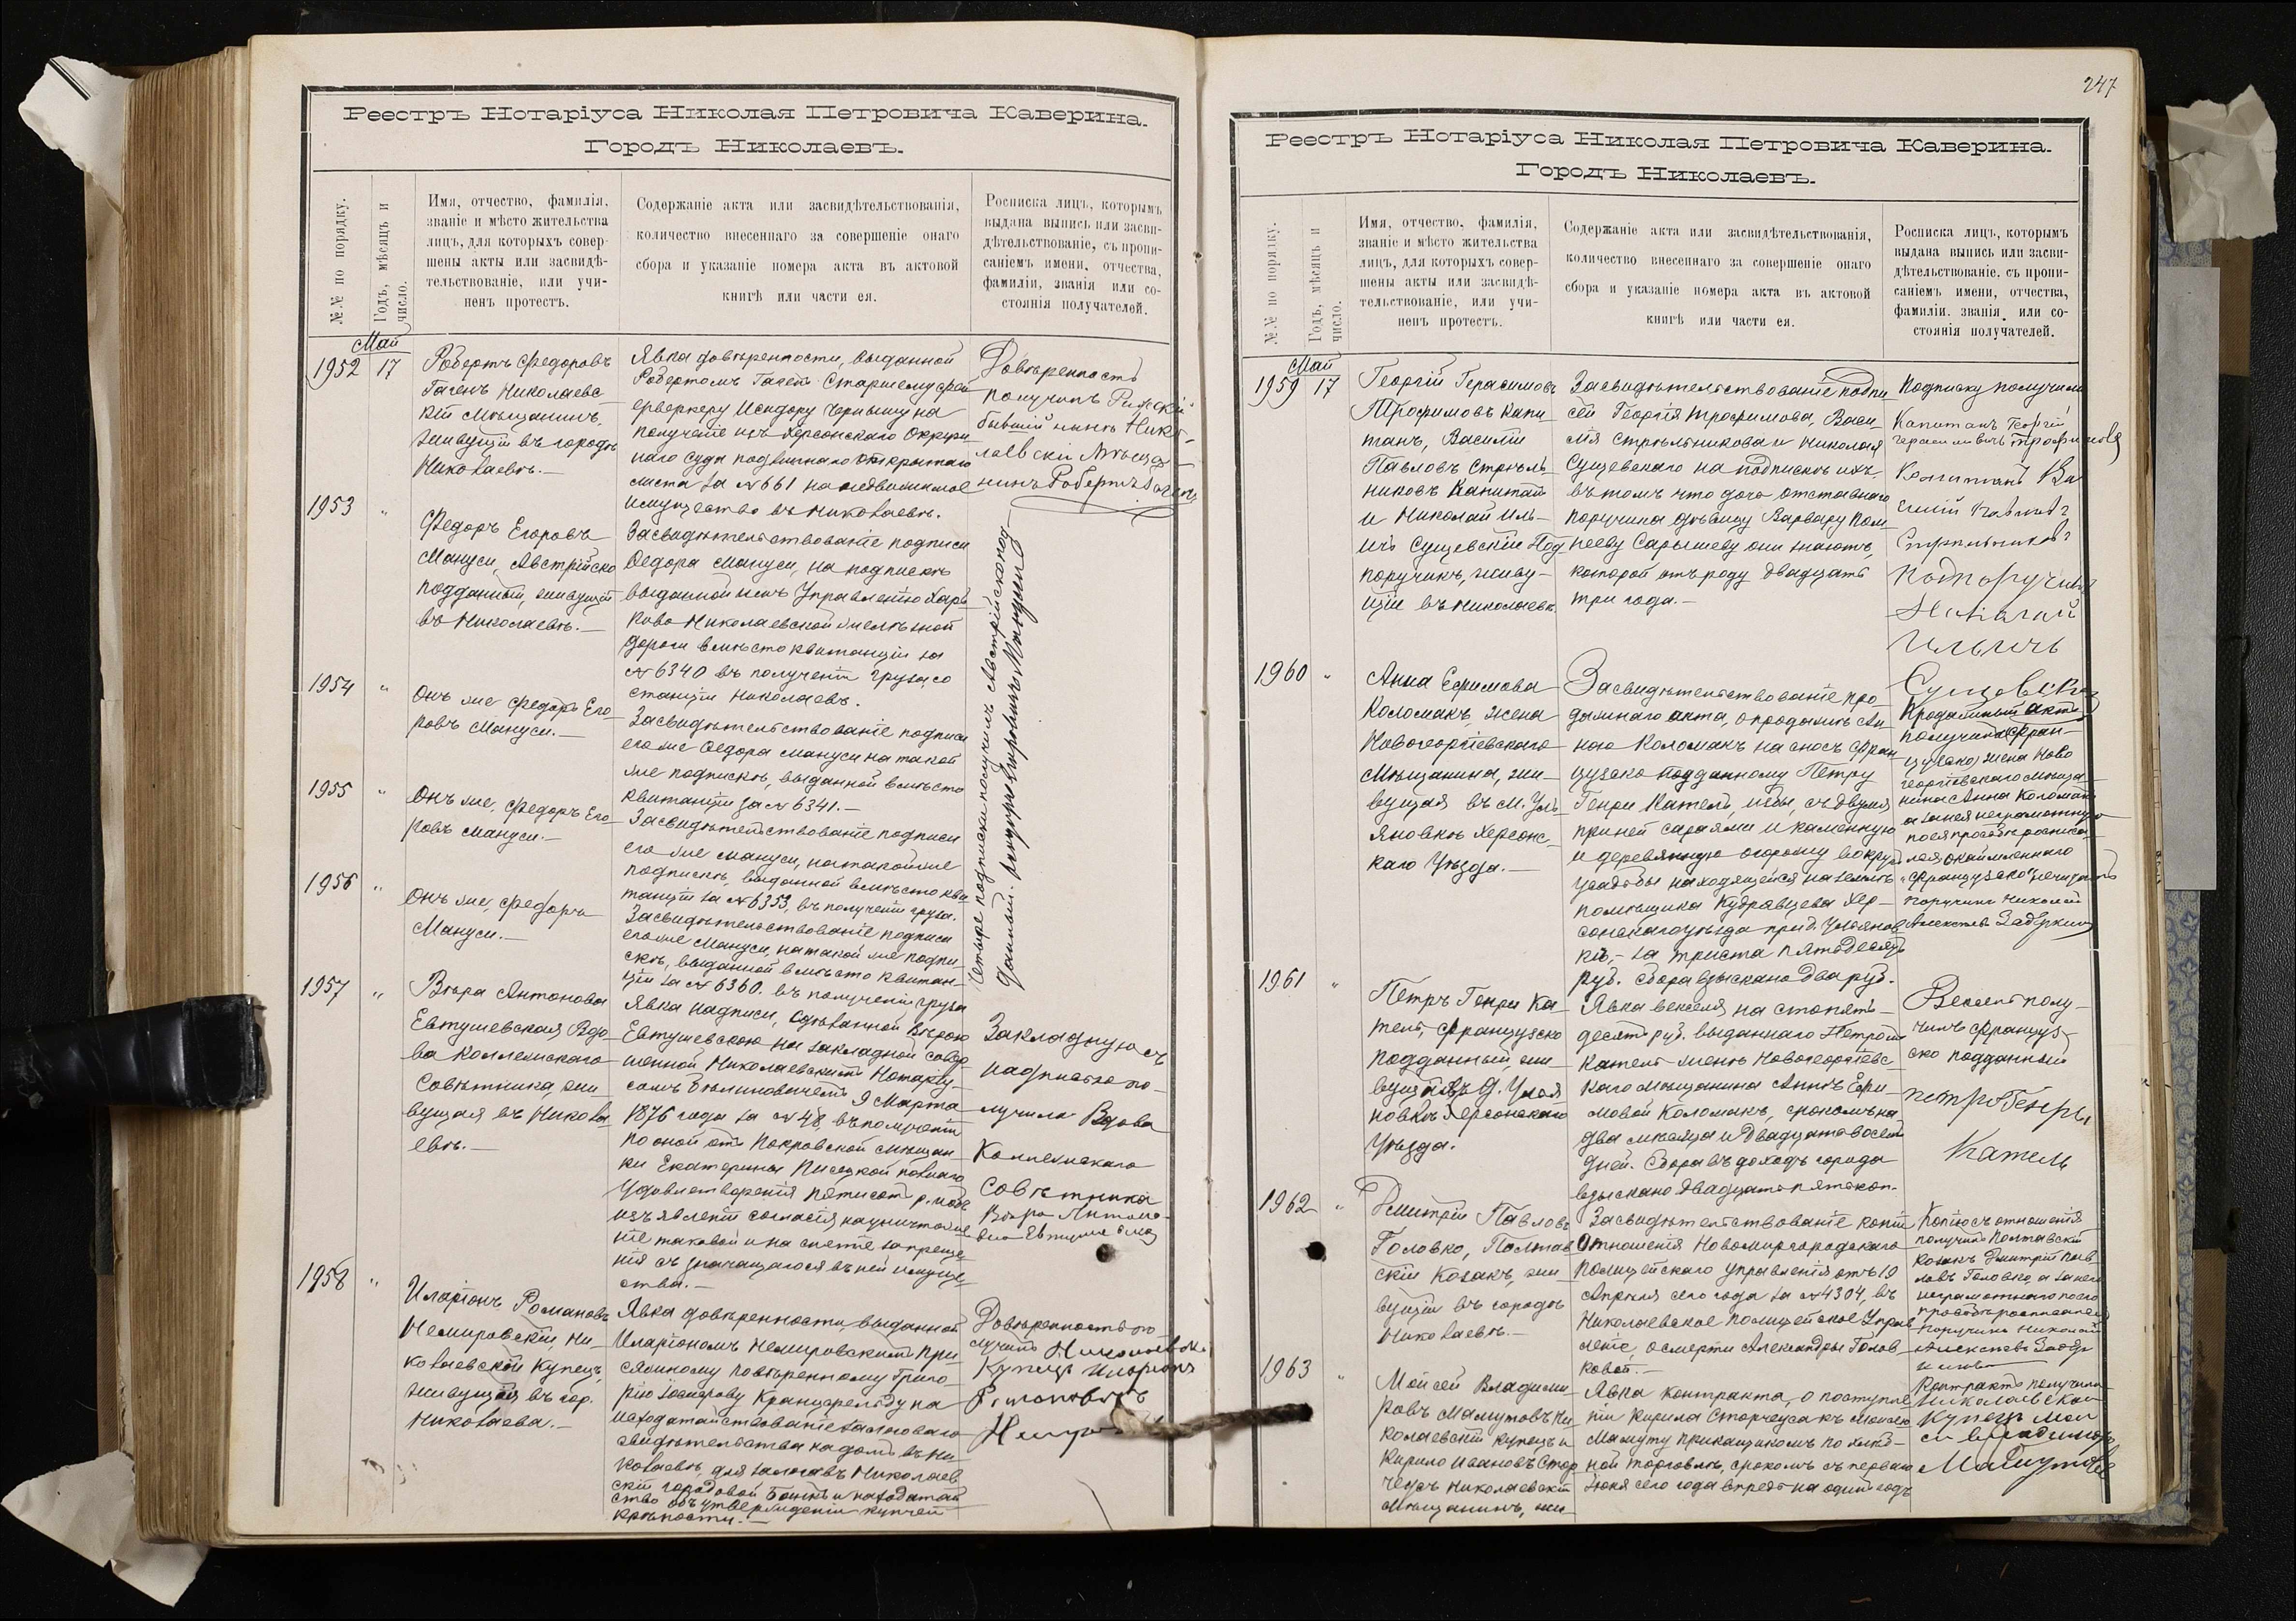 Реестръ Нотаріуса Николая Петровича Каверина.
Городъ Николаевъ.
№№ по порядку.
Годъ, мѣсяцъ и
число.
Имя, отчество, фамилія,
званіе и мѣсто жительства
лицъ, для которыхъ совер-
шены акты или засвидѣ-
тельствованіе, или учи-
ненъ протестъ.
Содержаніе акта или засвидѣтельствованія,
количество внесеннаго за совершеніе онаго
сбора и указаніе номера акта въ актовой
книгѣ или части ея.
Росписка лицъ, которымъ
выдана выпись или засви-
дѣтельствованіе, съ пропи-
саніемъ имени, отчества,
фамиліи, званія или со-
стоянія получателей.
Май
1952 17
Робертъ Федоровъ
Гагенъ Николаевс
кій Мѣщанинъ,
живущій въ городѣ
Николаевѣ.—
Явка довѣренности, выданной
Робертомъ Гагенъ Старшему фей
ерверкеру Исидору Чернышу на
полученіе изъ Херсонскаго Окруж
наго Суда подлиннаго открытаго
листа за №661 на недвижимое
имущество въ Николаевѣ.
Довѣренность
получилъ
бывший нынѣ Нико-
лаевскій Мѣща-
нинъ Робертъ Гагенъ
1953 "
Федоръ Егоровъ
Мануси, Австрійско
подданный, живущій
въ Николаевѣ.—
Засвидѣтельствованіе подписи
Федора Мануси, на подпискѣ
выданной имъ Управленію Харь
ково Николаевской желѣзной
дороги вмѣсто квитанціи за
№6340 въ полученіи груза, со
станціи Николаевъ.
1954 "
Онъ же Федоръ Его-
ровъ Мануси.—
Засвидѣтельствованіе подписи
его же Федора Мануси на такой
же подпискѣ, выданной вмѣсто
квитанціи за №6341.—
1955 "
Онъ же, Федоръ Его-
ровъ Мануси.—
Засвидѣтельствованіе подписи
его же Мануси, на такой же
подпискѣ, выданной вмѣсто кви
танціи за №6353, въ полученіи груза.
1956 "
Онъ же, Федоръ
Мануси.—
Засвидѣтельствованіе подписи
его же Мануси, на такой же подпи-
скѣ, выданной вмѣсто квитан-
ціи за №6360. въ полученіи груза
Четыре подписки получилъ Австрійскоподд-
данный. Федоръ Егоровичъ Мануси
1957 "
Вѣра Антонова
Евтушевская Вдо-
ва Коллежскаго
Совѣтника, жи
вущая въ Никола
евѣ.—
Явка надписи, сдѣланной Вѣрою
Евтушевскою на закладной совер
шенной Николаевскимъ Нотаріу-
сомъ Бѣлиновичемъ 9 Марта
1876 года за №48, въ полученіи
по оной отъ Покровской мѣщан-
ки Екатерины Писецкой полнаго
удовлетворенія пятисотъ р. и объ
изъявленіи согласія на уничтоже
ніе таковой и на снятіе запреще
нія съ значащагося въ ней имуще
ства.—
Закладную съ
надписью по-
лучила Вдова
Коллежскаго
Совѣтника
Вѣра Антоно-
ва Евтушевская
1958 "
Иларіонъ Романовъ
Немировскій, Ни-
колаевскій Купецъ,
живущій въ гор.
Николаевѣ.—
Явка довѣренности, выданной
Иларіономъ Немировскимъ при
сяжному повѣренному Григо-
рію Кранцфельду на
исходатайствованіе залоговаго
свидѣтельства на домъ въ Ни
колаевѣ, для залога въ Николаев
скій городовой Банкъ и на ходатай
ство объ утвержденіи купчей
крѣпости.—
Довѣренность по-
лучилъ Николаевск.
Купецъ Иларіонъ
Романовъ
247
Реестръ Нотаріуса Николая Петровича Каверина.
Городъ Николаевъ.
№№ по порядку.
Годъ, мѣсяцъ и
число.
Имя, отчество, фамилія,
званіе и мѣсто жительства
лицъ, для которыхъ совер-
шены акты или засвидѣ-
тельствованіе, или учи-
ненъ протестъ.
Содержаніе акта или засвидѣтельствованія,
количество внесеннаго за совершеніе онаго
сбора и указаніе номера акта въ актовой
книгѣ или части ея.
Росписка лицъ, которымъ
выдана выпись или засви-
дѣтельствованіе, съ пропи-
саніемъ имени, отчества,
фамиліи, званія или со-
стоянія получателей.
Май
1959 17
Георгій Герасимовъ
Трофимовъ Капи-
танъ, Василій
Павловъ Стрѣль
никовъ Капитанъ
и Николай Иль-
ичъ Сущевскій Под
поручикъ, живу-
щіе въ Николаевѣ
Засвидѣтельствованіе подпи
сей Георгія Трофимова, Васи-
лія Стрѣльникова и Николая
Сущевскаго на подпискѣ ихъ
въ томъ что дочь отставнаго
поручика дѣвицу Варвару Пом
пееву Сарышеву они знаютъ,
которой отъ роду двадцать
три года.—
Подписку получили
Капитанъ Георгій
Герасимовичъ Трофимовъ
Капитанъ Ва
силий Павловъ
Стрѣльниковъ
Подпоручикъ
Николай
Ильичъ
Сущевский
1960 "
Анна Ефимова
Коломакъ, жена
Новогеоргіевскаго
Мѣщанина, жи-
вущая въ М. Уль
яновкѣ Херсонс-
каго Уѣзда.—
Засвидѣтельствованіе про-
дажнаго акта, о продажѣ Ан
ною Коломакъ на сносъ Фран
цузско подданному Петру
Генри Катель, избы, съ двумя
при ней сараями и каменную
и деревянную огорожу вокругъ
усадьбы находящейся на землѣ
помѣщика Кудрявцева Хер-
сонскаго уѣзда при д. Ульянов
кѣ,- за триста пятьдесятъ
руб. Сбора взыскано два руб.
Продажный актъ
получила
жена Ново
георгіевскаго мѣща-
нина Анна Коломакъ
а за нея неграмотную
по ея просьбѣ росписа-
лся
поручикъ Николай
Алексѣевъ
1961 "
Петръ Генри Ка
тель, Французско
подданный, жи
вущій въ д. Улья
новкѣ Херсонскаго
Уѣзда.
Явка векселя на сто пять-
десятъ руб. выданнаго Петромъ
Катель женѣ Новогеоргіевс-
каго мѣщанина Аннѣ Ефи-
мовой Коломакъ, срокомъ на
два мѣсяца и двадцать восемь
дней. Сбора въ доходъ города
взыскано двадцать пять коп.
Вексель полу-
чилъ Француз-
ско подданный
Петръ Генры
Катель
1962 "
Дмитрій Павловъ
Головко, Полтав
скій Козакъ, жи
вущій въ городѣ
Николаевѣ.—
Засвидѣтельствованіе копіи
Отношенія Новомиргородскаго
полицейскаго управленія отъ 19
Апрѣля сего года за №4304, въ
Николаевское полицейское Управ
леніе, о смерти Александры Голов-
ковой.—
Копію съ отношенія
получилъ Полтавскій
Козакъ Дмитрій Пав
ловъ Головко, а за него
неграмотнаго по его
просьбѣ росписался
поручикъ Николай
Алексѣевъ
1963 "
Мойсей Владими-
ровъ Мамутовъ Ни
колаевскій купецъ и
Кирило Ивановъ Стор
чеусъ Николаевскій
мѣщанинъ, жи-
Явка контракта, о поступле
ніи Кирила Сторчеуса къ Мойсею
Мамуту прикащикомъ по хлѣб-
ной торговлѣ, срокомъ съ перваго
Іюня сего года впредь на одинъ годъ
Контрактъ получилъ
Николаевскій
Купецъ Мои
сей Владимировъ
Мамутовъ